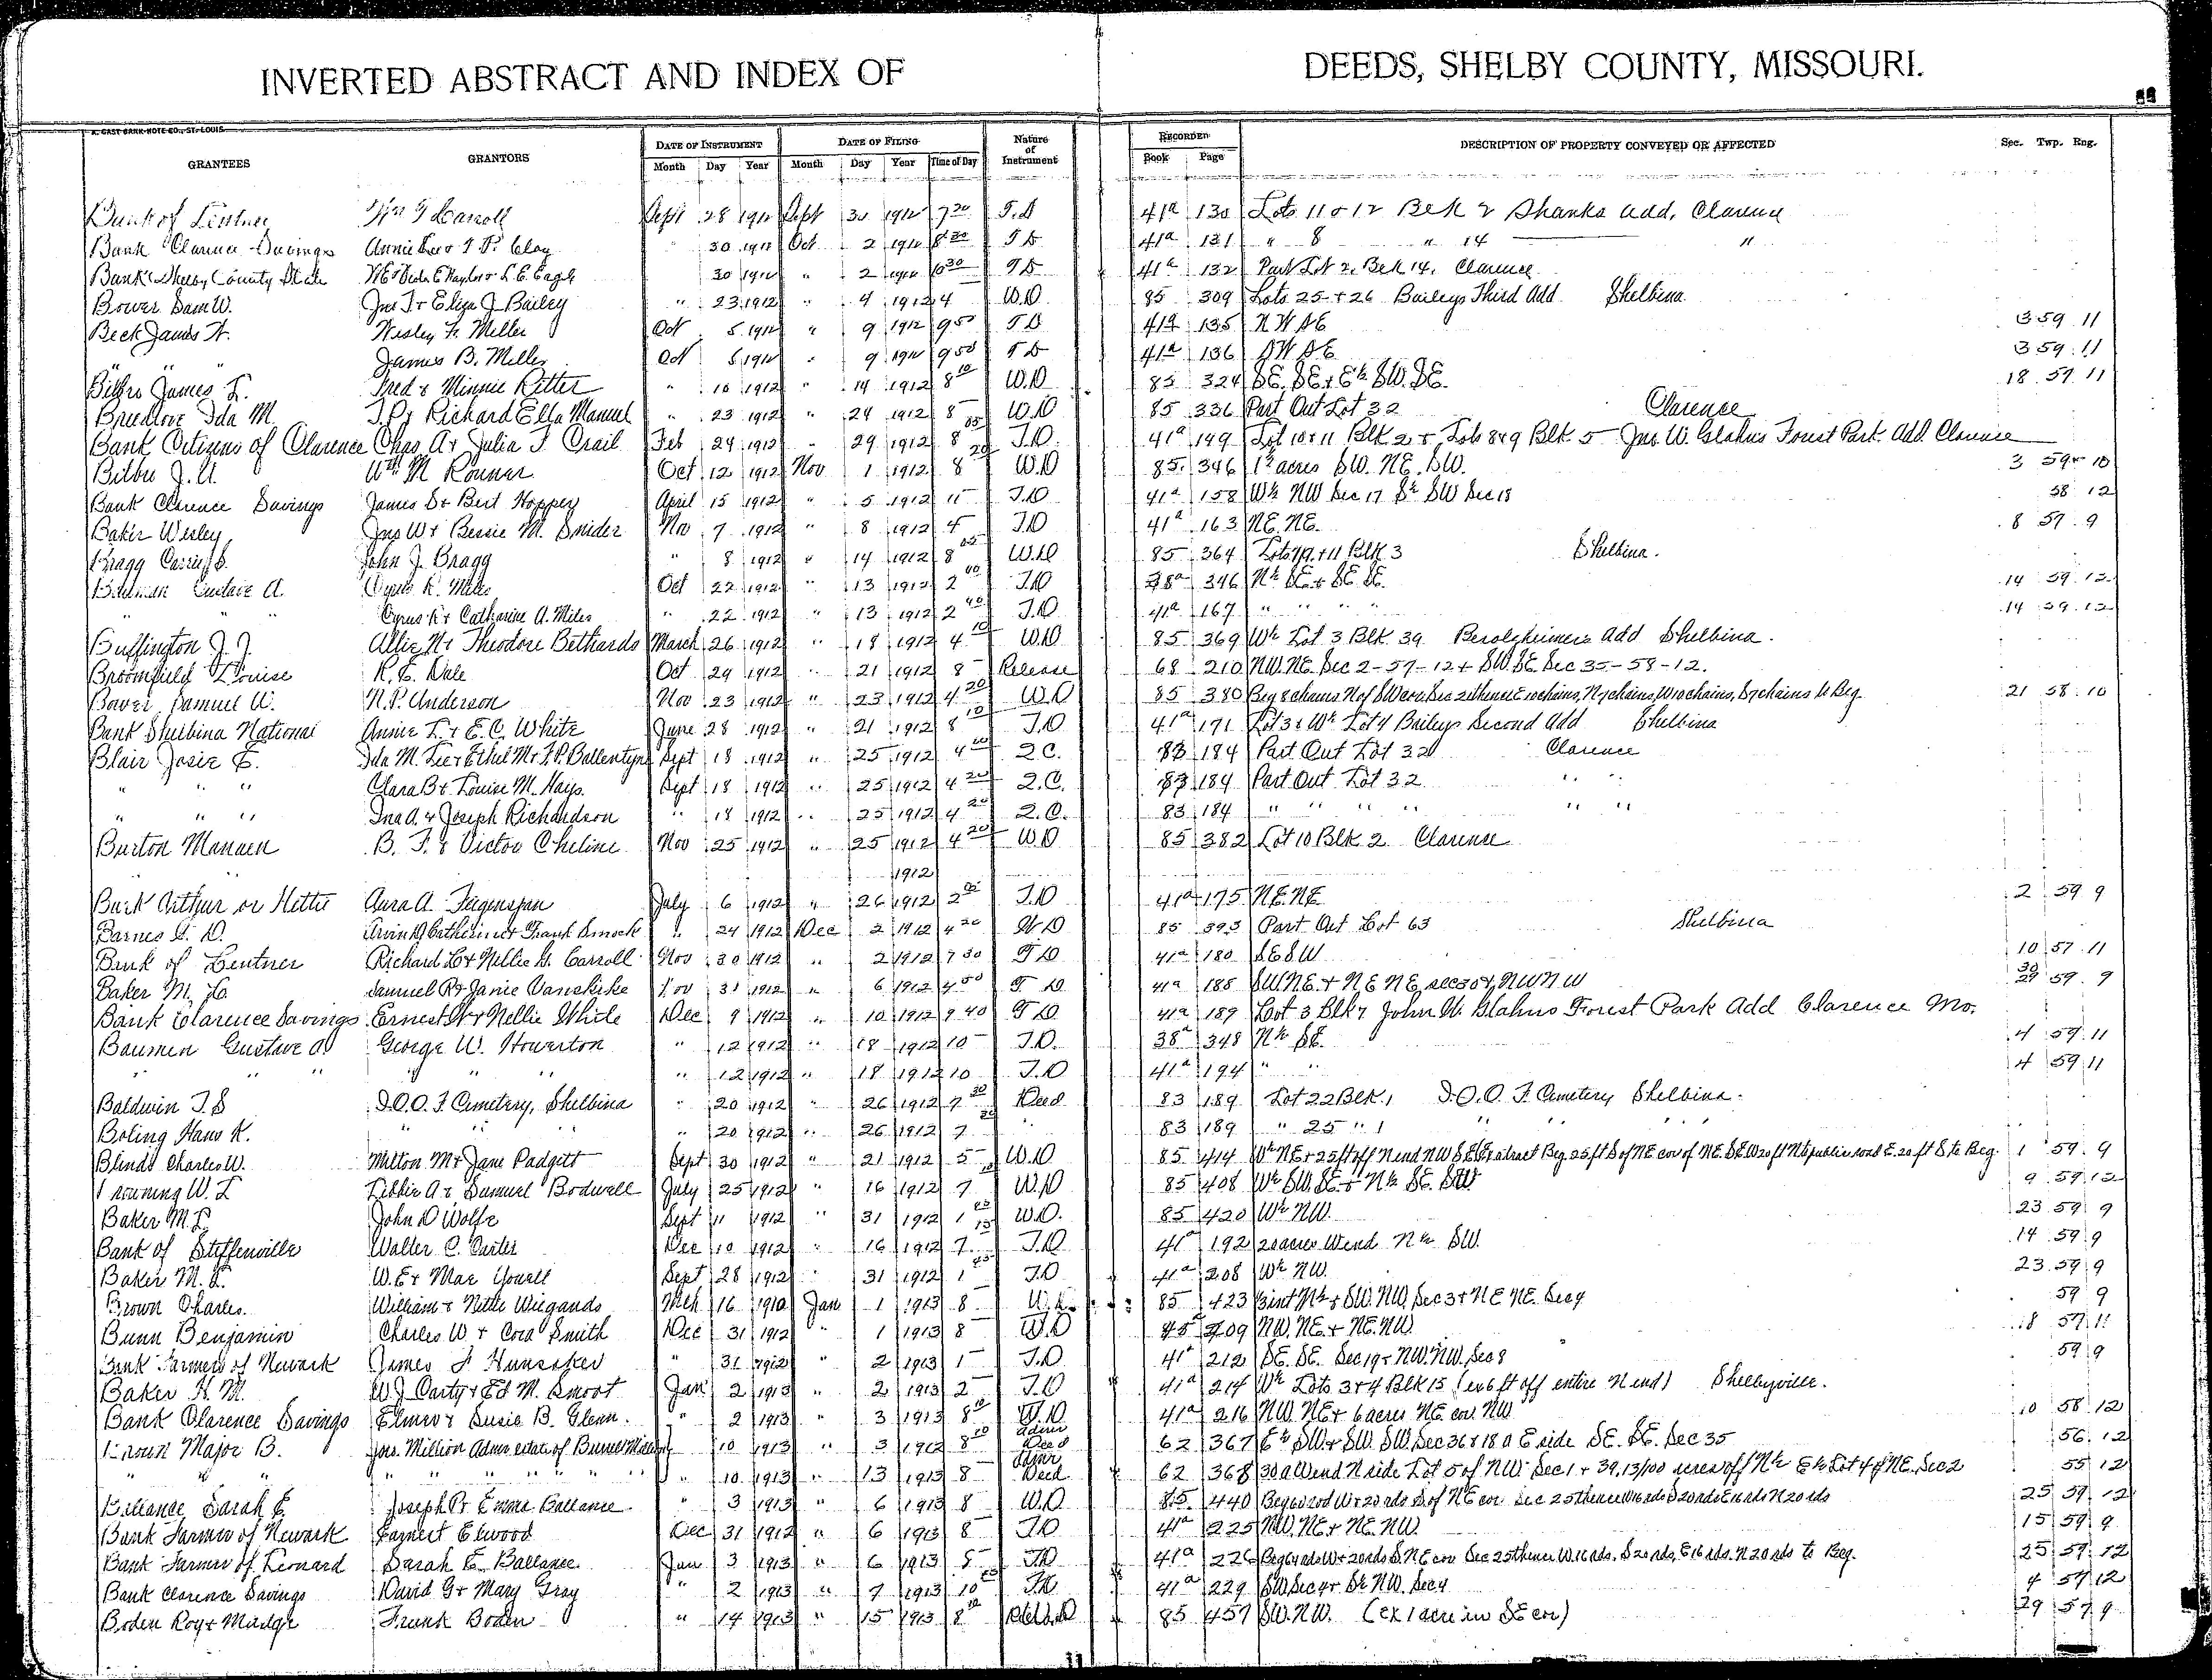 INVERTED ABSTRACT AND INDEX OF DEEDS, SHELBY COUNTY, MISSOURI.
A. GAST BANK NOTE CO., ST. LOUIS
GRANTEES GRANTORS DATE OF INSTRUMENT DATE OF FILING Nature of Instrument RECORDED DESCRIPTION OF PROPERTY CONVEYED OR AFFECTED Sec. Twp. Rng.
Month Day Year Month Day Year Time of Day Book Page
Bank of Lentner Wm F Carroll Sept 28 1912 Sept 30 1912 7 20 T.D 41a 130 Lots 11 & 12 Blk 2 Shanks add, Clarence
Bank Clarence Savings Annie Lee & T. P. Clay " 30 1912 Oct 2 1912 8 30 T D 41a 131 " 8 " 14 "
Bank Shelby County State 30 1912 " 2 1912 10 30 T D 41a 132 Part Lot 2, Blk 14, Clarence
Bower Sam W. Jno T & Eliza J Bailey " 23 1912 " 4 1912 4 W.D 85 309 Lots 25 & 26 Baileys Third Add Shelbina
Beck James H. Wesley F. Miller Oct 5 1912 " 9 1912 9 50 T D 41a 135 N W S E 3 59 11
" " James B. Miller Oct 5 1912 " 9 1912 9 50 T D 41a 136 S W S E 3 59 11
Bilbro James L. Fred & Minnie Ritter " 10 1912 " 14 1912 8 10 W.D 85 324 S.E. S.E. & E½ S.W. S.E. 18 57 11
Breedlove Ida M. T. P. & Richard Ella Manuel " 23 1912 " 24 1912 8 W.D 85 336 Part Out Lot 32 Clarence
Bank Citizens of Clarence Chas A & Julia F. Crail Feb 24 1912 " 29 1912 8 05 T.D. 41a 149 Lot 10 & 11 Blk 2 & Lots 8 & 9 Blk 5 Jno. W. Glahns Forest Park Add. Clarence
Bilbro J. U. Wm. M Rouner Oct 12 1912 Nov 1 1912 8 20 W.D 85 346 acres S.W. N.E. S.W. 3 59 10
Bank Clarence Savings James S & Bert Hopper April 15 1912 " 5 1912 11 T.D 41a 158 W½ NW Sec 17 S½ SW Sec 18 58 12
Baker Wesley Jno W & Bessie M. Snider Nov 7 1912 " 8 1912 4 T.D 41a 163 N.E. N.E. 8 57 9
Bragg Carrie B. John J. Bragg " 8 1912 " 14 1912 8 05 W.D 85 364 Lots 9 & 11 Blk 3 Shelbina.
Bauman Gustave A. Cyrus K. Miles Oct 22 1912 " 13 1912 2 40 T.D 38a 346 N½ S.E. & S.E. S.E. 14 59 12
" " Cyrus K & Catharine A. Miles " 22 1912 " 13 1912 2 40 T.D. 41a 167 " " " " 14 59 12
Buffington J. J. Allie N & Theodore Bethards March 26 1912 " 18 1912 4 10 W.D 85 369 W½ Lot 3 Blk 39 Berolzheimers Add Shelbina.
Broomfield Louise R. E. Dale Oct 29 1912 " 21 1912 8 Release 68 210 N.W. N.E. Sec 2-57-12 & S.W. S.E. Sec 35-58-12.
Bower Samuel W. N. P. Anderson Nov 23 1912 " 23 1912 4 20 W.D 85 380 Beg 8 chains N of SW cor Sec 21 thence E 10 chains, N 7 chains, W 10 chains, S 7 chains to Beg 21 58 10
Bank Shelbina National Annie L. & E. C. White June 28 1912 " 21 1912 8 10 T.D 41a 171 Lot 3 & W½ Lot 4 Baileys Second Add Shelbina
Blair Josie E. Ida M. Lee & Ethel M & F. P. Ballentyne Sept 18 1912 " 25 1912 4 20 Q.C. 83 184 Part Out Lot 32 Clarence
" " " Clara B & Louise M. Hays. Sept 18 1912 " 25 1912 4 20 Q.C. 83 184 Part Out Lot 32 " "
" " " Ina A. & Joseph Richardson " 18 1912 " 25 1912 4 20 Q.C. 83 184 " " " " " "
Burton Manaen B. F. & Victor Cheline Nov 25 1912 " 25 1912 4 20 W.D 85 382 Lot 10 Blk 2 Clarence
1912
Burk Arthur or Hettie Aura A. Fugenspan July 6 1912 " 26 1912 2 T.D 41a 175 N.E. N.E. 2 59 9
Barnes A. D. Arvin D Catherine & Frank Smock " 24 1912 Dec 2 1912 4 20 W D 85 393 Part Out Lot 63 Shelbina
Bank of Lentner Richard L & Nellie G. Carroll Nov 30 1912 " 2 1912 7 30 T D 41a 180 S E S W 10 57 11
Baker M. L. Samuel R & Janie Vanskike Nov 31 1912 " 6 1912 4 50 T D 41a 185 S.W. N.E. & N E N E sec 30 & N W N W 30 29 59 9
Bank Clarence Savings Ernest W & Nellie White Dec 9 1912 " 10 1912 9 40 T D 41a 189 Lot 3 Blk 7 John W. Glahns Forest Park Add Clarence Mo.
Baumen Gustave A George W. Howerton " 12 1912 " 18 1912 10 T.D. 38a 348 N½ S.E. 4 59 11
" " " " " " 12 1912 " 18 1912 10 T.D 41a 194 " " 4 59 11
Baldwin T. S I.O.O.F. Cemetery, Shelbina " 20 1912 " 26 1912 7 30 Deed 83 189 Lot 22 Blk. 1 I.O.O.F. Cemetery Shelbina.
Boling Hans K. " " " " 20 1912 " 26 1912 7 " 83 189 " 25 " 1 " " "
Blinds Charles W. Milton M & Jane Padgett Sept 30 1912 " 21 1912 5 W.D 85 414 W½ N.E. & 25 ft off N end N W S E & a tract Beg. 25 ft S of N E cor of N.E. S.E. W 20 ft N to public road E. 20 ft S to Beg. 1 59 9
W. L Libbie A & Samuel Bodwell July 25 1912 " 16 1912 7 W.D 85 408 W½ S.W. S.E. & N½ S.E. S.W. 9 59 12
Baker M. L. John D Wolfe Sept 11 1912 " 31 1912 1 W.D. 85 420 W½ N.W. 23 59 9
Bank of Steffenville Walter C. Carter Dec 10 1912 " 16 1912 7 15 T.D 41a 192 20 acres W end N½ S.W. 14 59 9
Baker M. L. W. E & Mae Yowell Sept 28 1912 " 31 1912 1 25 T.D 41a 208 W½ N.W. 23 59 9
Brown Charles. William & Nettie Wiegands Mch 16 1910 Jan 1 1913 8 W.D. 85 423 N½ & S.W. N.W. Sec 3 & N E N E. Sec 4 59 9
Bunn Benjamin Charles W. & Cora Smith Dec 31 1912 " 1 1913 8 W.D 409 N.W. N.E. & N.E. N.W. 18 57 11
Bank Farmers of Newark James F Hunsaker " 31 1912 " 2 1913 1 T.D 41a 212 S.E. S.E. Sec 19 & N.W. N.W. Sec 8 59 9
Baker H. M. W. J. Carty & Ed M. Smoot Jan 2 1913 " 2 1913 2 T.D 41a 214 W½ Lots 3 & 4 Blk 15 (ex 6 ft off entire N end) Shelbyville.
Bank Clarence Savings Elmer & Susie B. Glenn. " 2 1913 " 3 1913 8 10 41a 216 N.W. N.E. & 6 acres N.E. cor. N.W. 10 58 12
Brown Major B. Jno. Million Admr estate of Burrel Million " 10 1913 " 3 1913 8 Admr Deed 62 367 E½ S.W. & S.W. S.W. Sec 36 & 18 a E side S.E. S.E. Sec 35 56 12
" " " " " " " " " 10 1913 " 13 1913 8 Admr Deed 62 368 30 a W end N side Lot 5 of N.W. Sec 1 & 39.13/100 acres off N½ E½ Lot 4 of N.E. Sec 2 55 12
Ballance Sarah E. Joseph P & Emma Ballance. " 3 1913 " 6 1913 8 W.D 85 440 Beg 60 rod W & 20 rds S of N E cor Sec 25 thence W 16 rds S 20 rds E 16 rds N 20 rds 25 59 12
Bank Farmer of Newark Earnest Elwood Dec 31 1912 " 6 1913 8 T.D 41a 225 N.W. N.E. & N.E. N.W. 15 59 9
Bank Farmer of Leonard Sarah E. Ballance. Jan 3 1913 " 6 1913 5 T.D 41a 226 Beg 64 rds W & 20 rds S. N E cor Sec 25 thence W. 16 rds. S 20 rds, E 16 rds. N 20 rds to Beg. 25 59 12
Bank Clarence Savings David G & Mary Gray " 2 1913 " 7 1913 10 T.D. 41a 229 S.W. Sec 4 & S½ N.W. Sec 4 4 57 12
Boden Roy & Madge Frank Boden " 14 1913 " 15 1913 8 10 85 457 S.W. N.W. (ex 1 acre in S E cor) 29 57 9